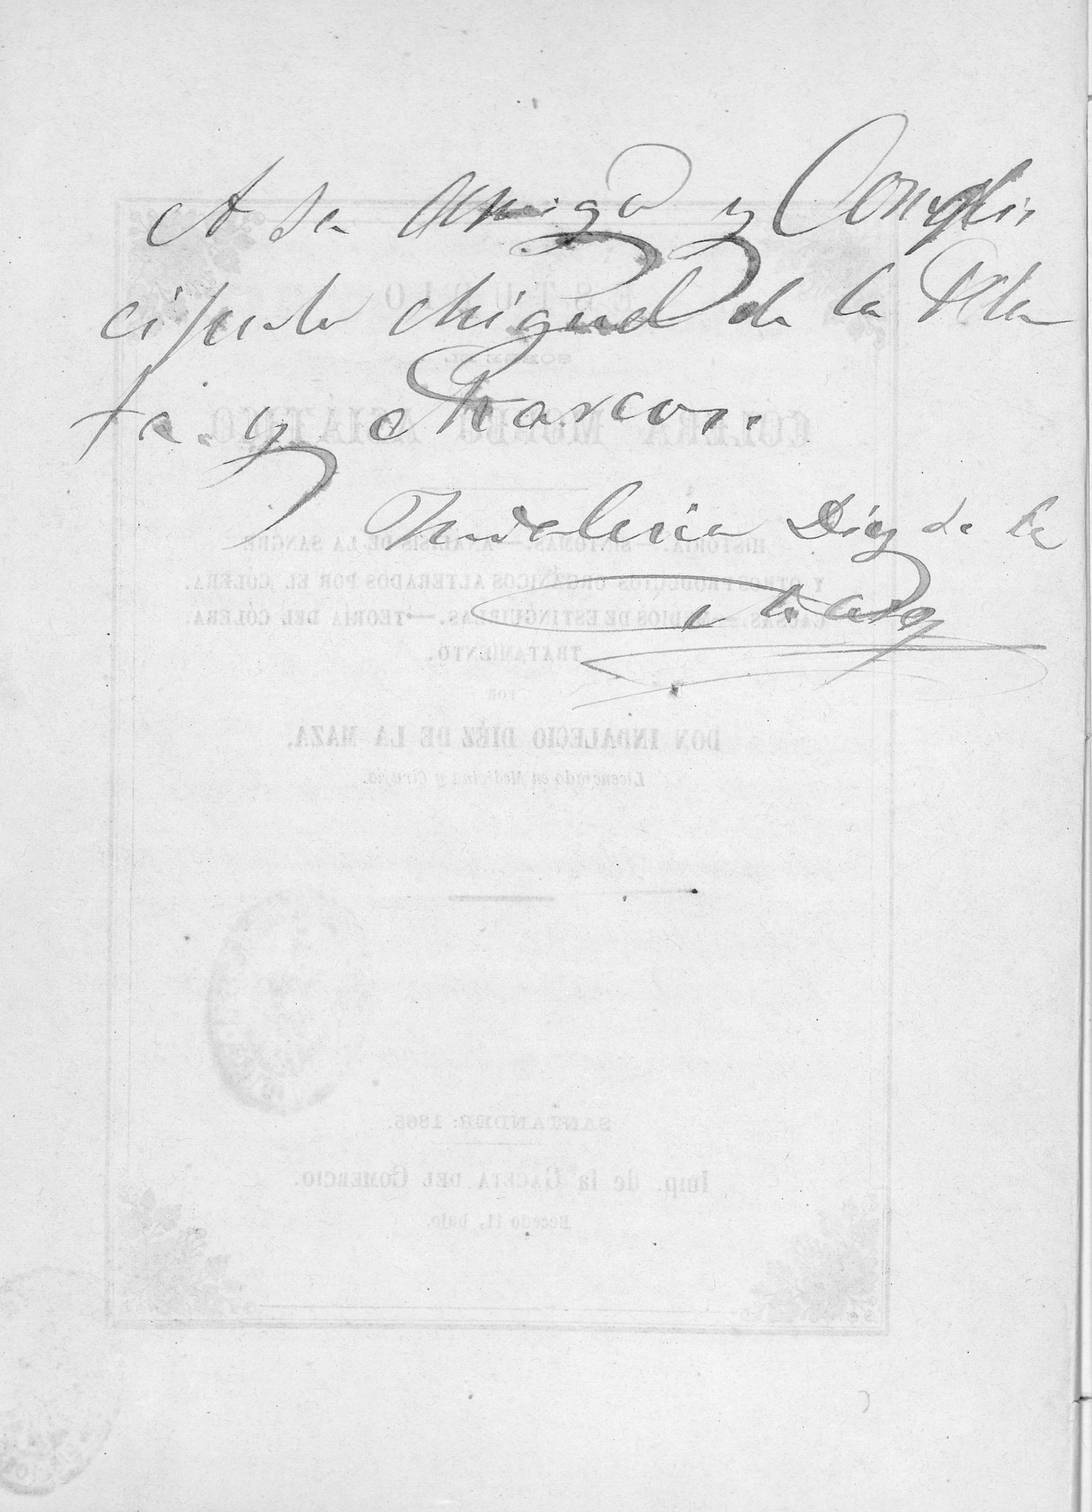 A su amigo y Condis
cipulo Miguel de la Pla
ta y Marcos.
Indalecio Diez de la
Maza
ESTUDIO
SOBRE EL
CÓLERA MORBO ASIÁTICO
HISTORIA.—SINTOMAS.—ANÁLISIS DE LA SANGRE
Y OTROS PRODUCTOS ORGÁNICOS ALTERADOS POR EL CÓLERA.
CAUSAS.—MEDIOS DE ESTINGUIRLAS.—TEORÍA DEL CÓLERA.
TRATAMIENTO.
POR
DON INDALECIO DIEZ DE LA MAZA,
Licenciado en Medicina y Cirujía.
SANTANDER: 1865.
Imp. de la GACETA DEL COMERCIO.
Becedo 11, bajo.